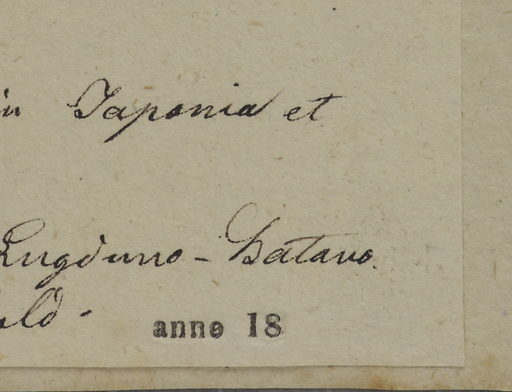 in Japonia et
Lugduno-Batavo.
anno 18